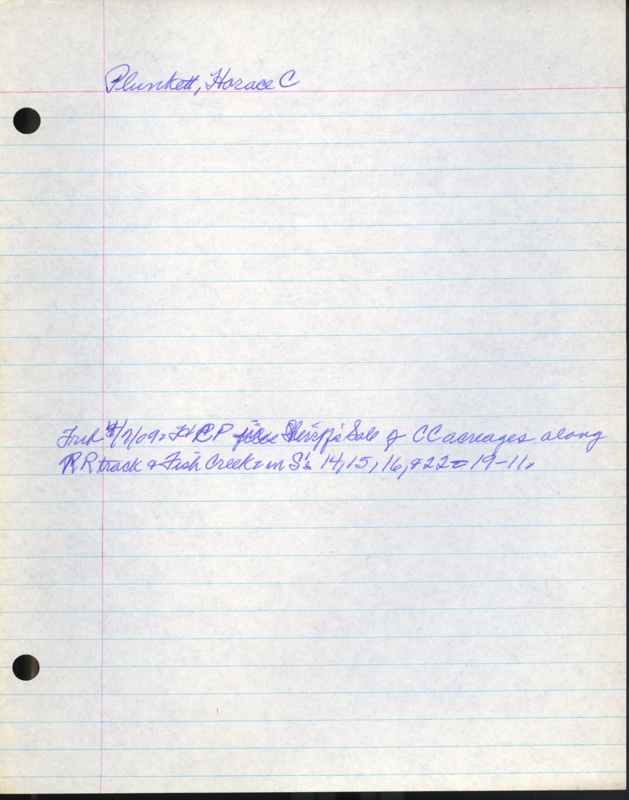 Plunkett, Horace C
4/7/09 = HCP files Sheriff's Sale of CC acreages along
RR track & Fish Creek = in S's 14, 15, 16, & 22 = 19-11.